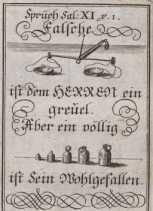 Sprüch Sal: XI. v. 1.
Falsche
ist dem HERREN ein
greüel.
Aber ein völlig
ist Sein Wohlgefallen.